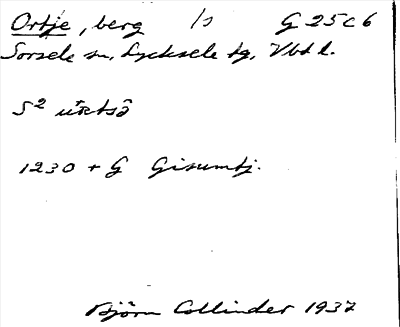 Ortje, berg /s G 25 C 6
Sorsele sn, Lycksele tg, Vbtl.
S²
1230 + G Gisumtj.
Björn Collinder 1937